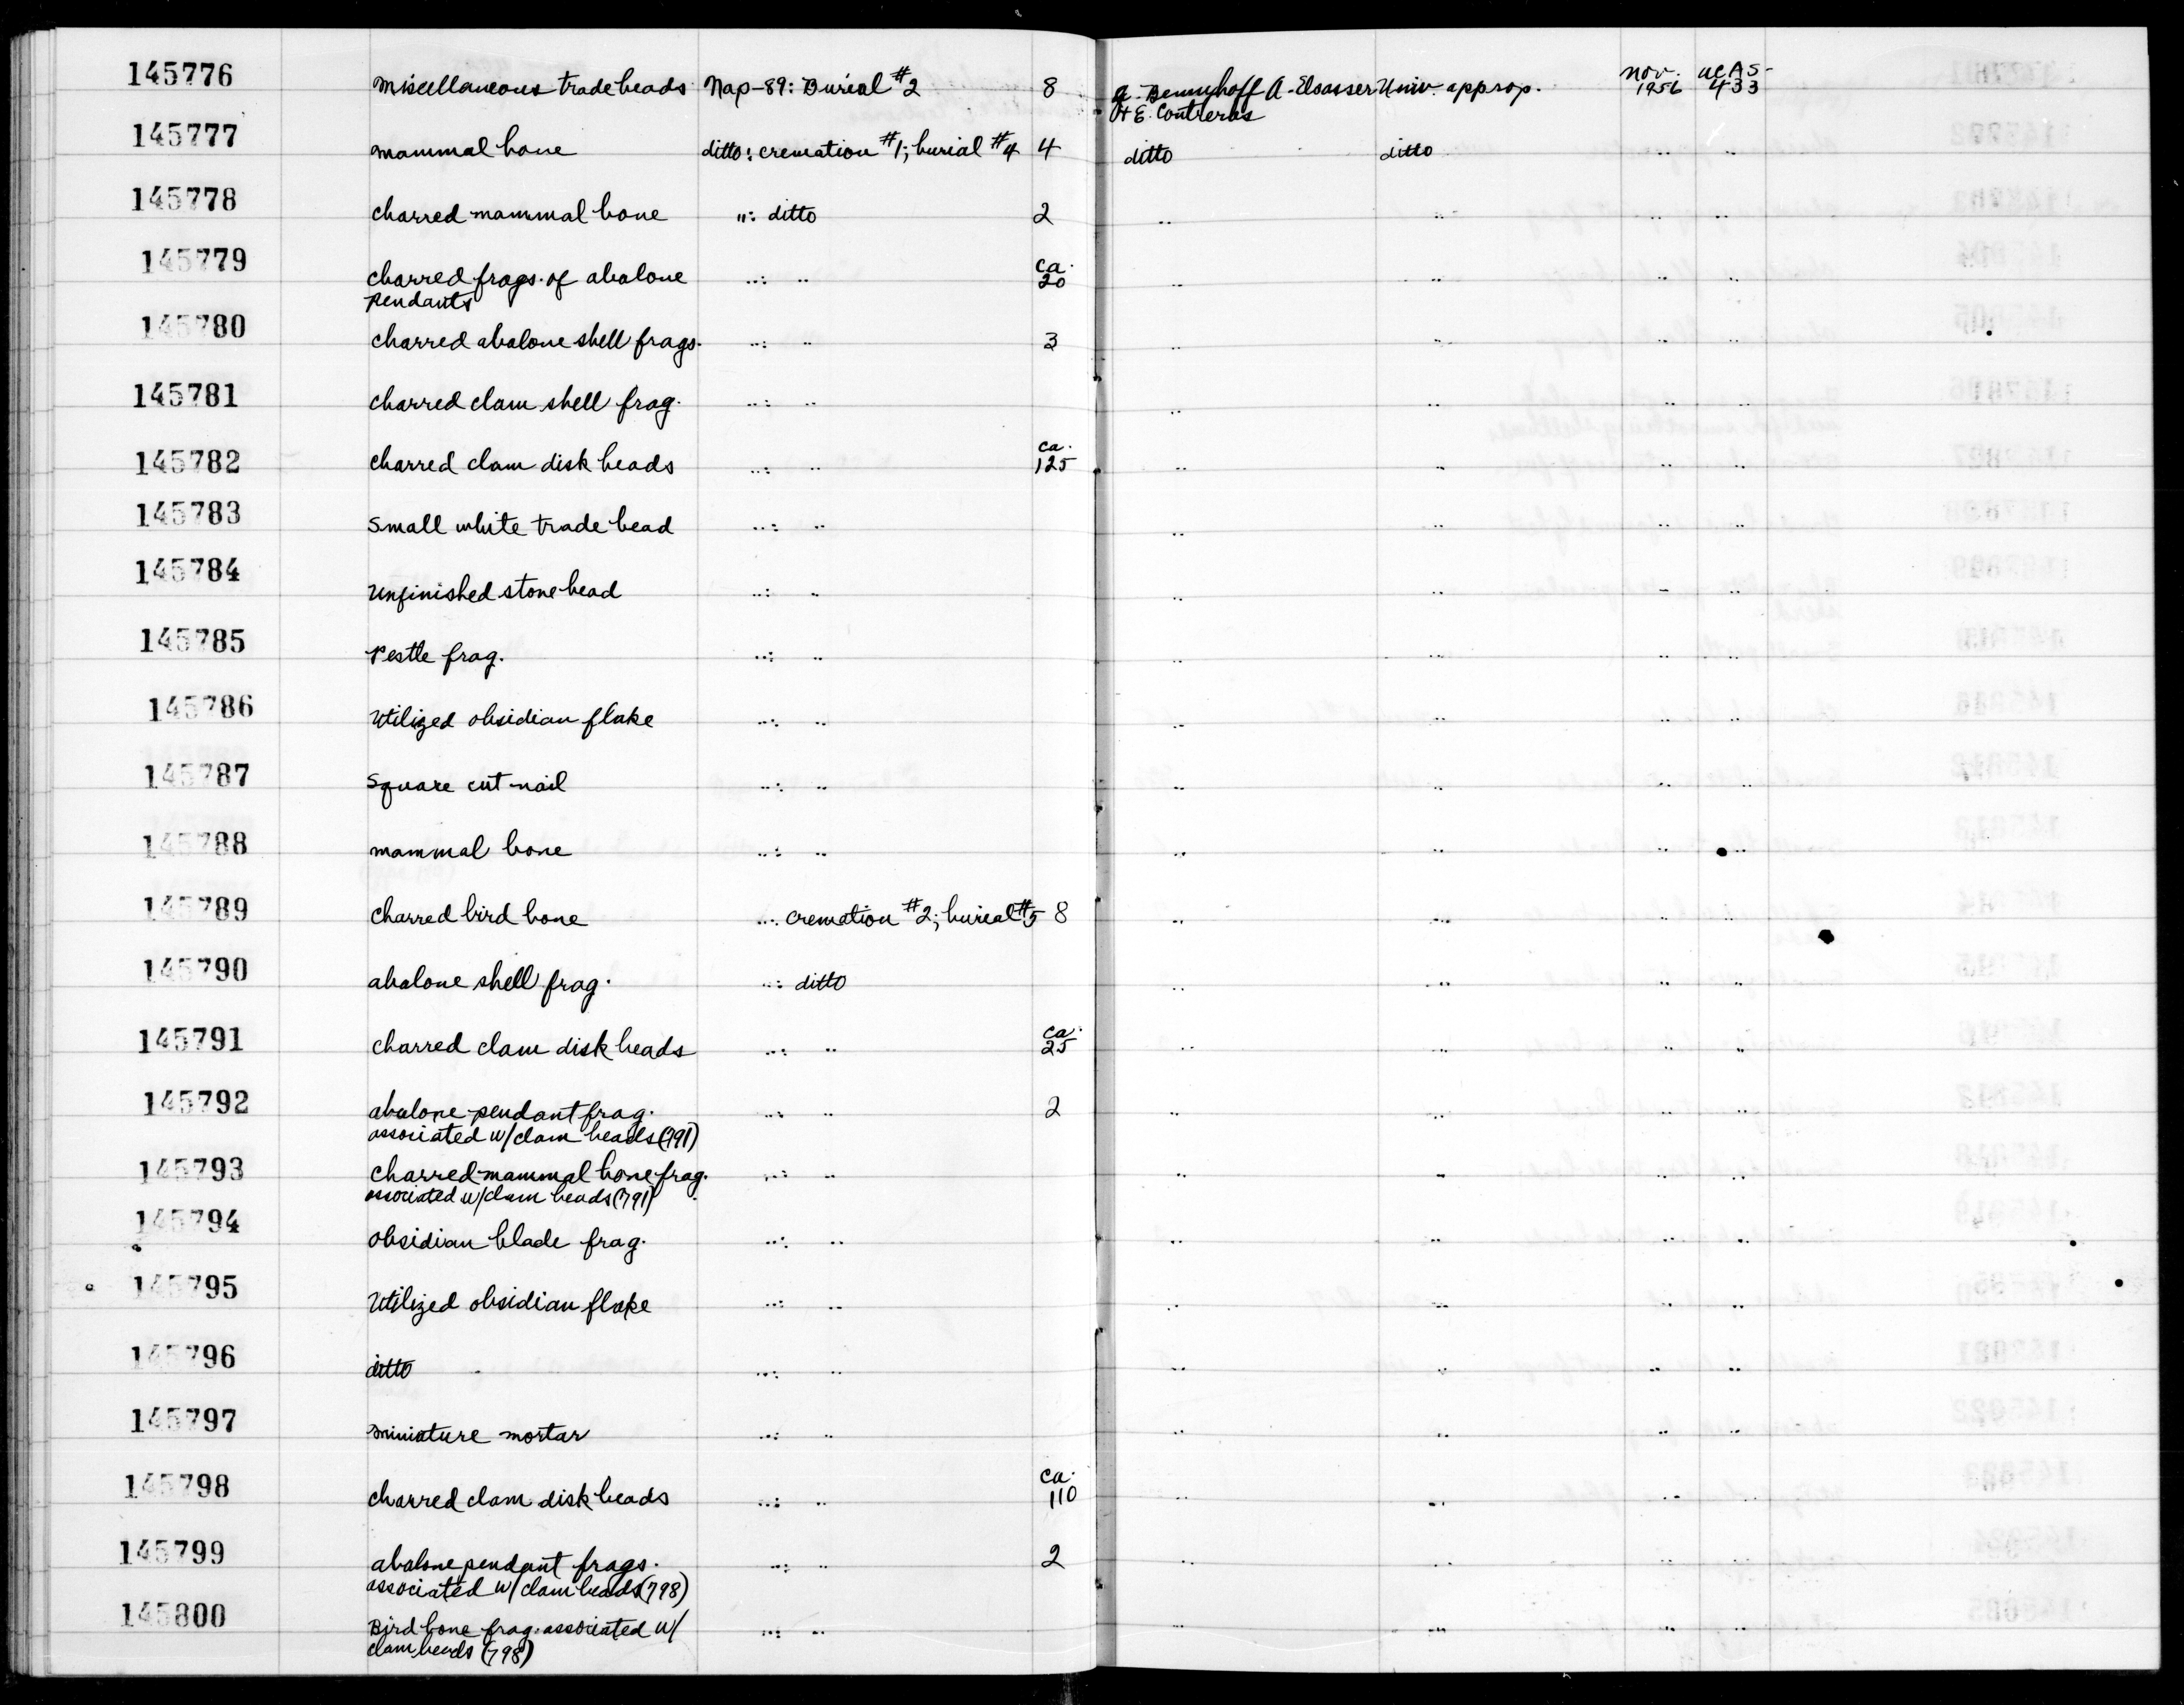 145776 miscellaneous trade beads Nap-89: Burial #2 8 A. Bennyhoff A. Elsasser Univ. approp. Nov. 1956 UCAS-433
& E. Contreras
145777 mammal bone ditto: cremation #1; burial #4 4 ditto ditto " "
145778 charred mammal bone ": ditto 2 " " " "
145779 charred frags. of abalone pendants ": " ca. 20 " " " "
145780 charred abalone shell frags. ": " 3 " " " "
145781 charred clam shell frag. ": " " " " "
145782 charred clam disk beads ": " ca. 125 " " " "
145783 Small white trade bead ": " " " " "
145784 Unfinished stone bead ": " " " " "
145785 Pestle frag. ": " " " " "
145786 Utilized obsidian flake ": " " " " "
145787 Square cut nail ": " " " " "
145788 mammal bone ": " " " " "
145789 Charred bird bone ": cremation #2; burial #5 8 " " " "
145790 abalone shell frag. ": ditto " " " "
145791 charred clam disk beads ": " ca. 25 " " " "
145792 abalone pendant frag. ": " 2 " " " "
associated w/ clam beads (791)
145793 charred mammal bone frag. ": " " " " "
associated w/ clam beads (791)
145794 obsidian blade frag. ": " " " " "
145795 Utilized obsidian flake ": " " " " "
145796 ditto ": " " " " "
145797 miniature mortar ": " " " " "
145798 charred clam disk beads ": " ca. 110 " " " "
145799 abalone pendant frags. ": " 2 " " " "
associated w/ clam beads (798)
145800 Bird bone frag. associated w/ ": " " " " "
clam beads (798)